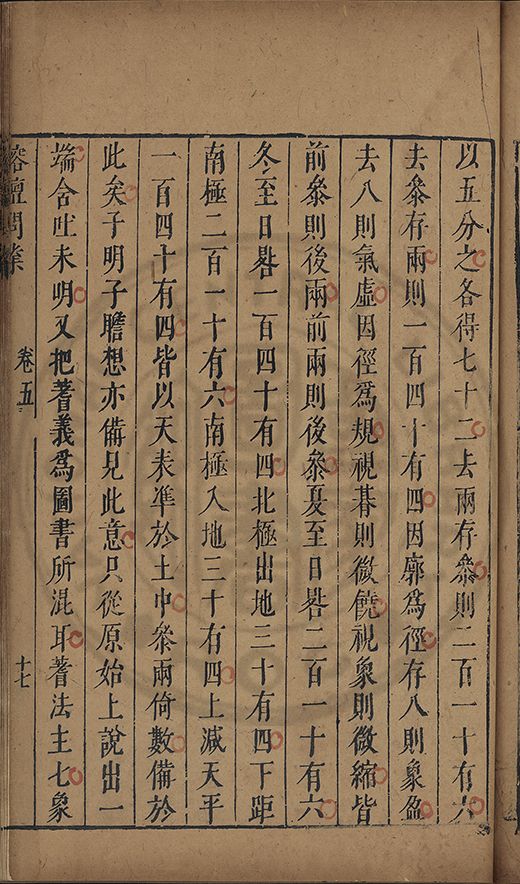 以五分之各得七十二去兩存叅則二百一十有六
去叅存兩則一百四十有四因廓爲徑存八則象盈
去八則氣虛因徑爲規視碁則微饒視象則微縮皆
前叅則後兩前兩則後叅夏至日晷二百一十有六
冬至日晷一百四十有四北極出地三十有四下距
南極二百一十有六南極入地三十有四上減天平
一百四十有四皆以天表準於土中叅兩倚數備於
此矣子明子瞻想亦備見此意只從原始上說出一
端含吐未明又把蓍義爲圖書所混耳蓍法主七象
榕壇問業
卷五
十七